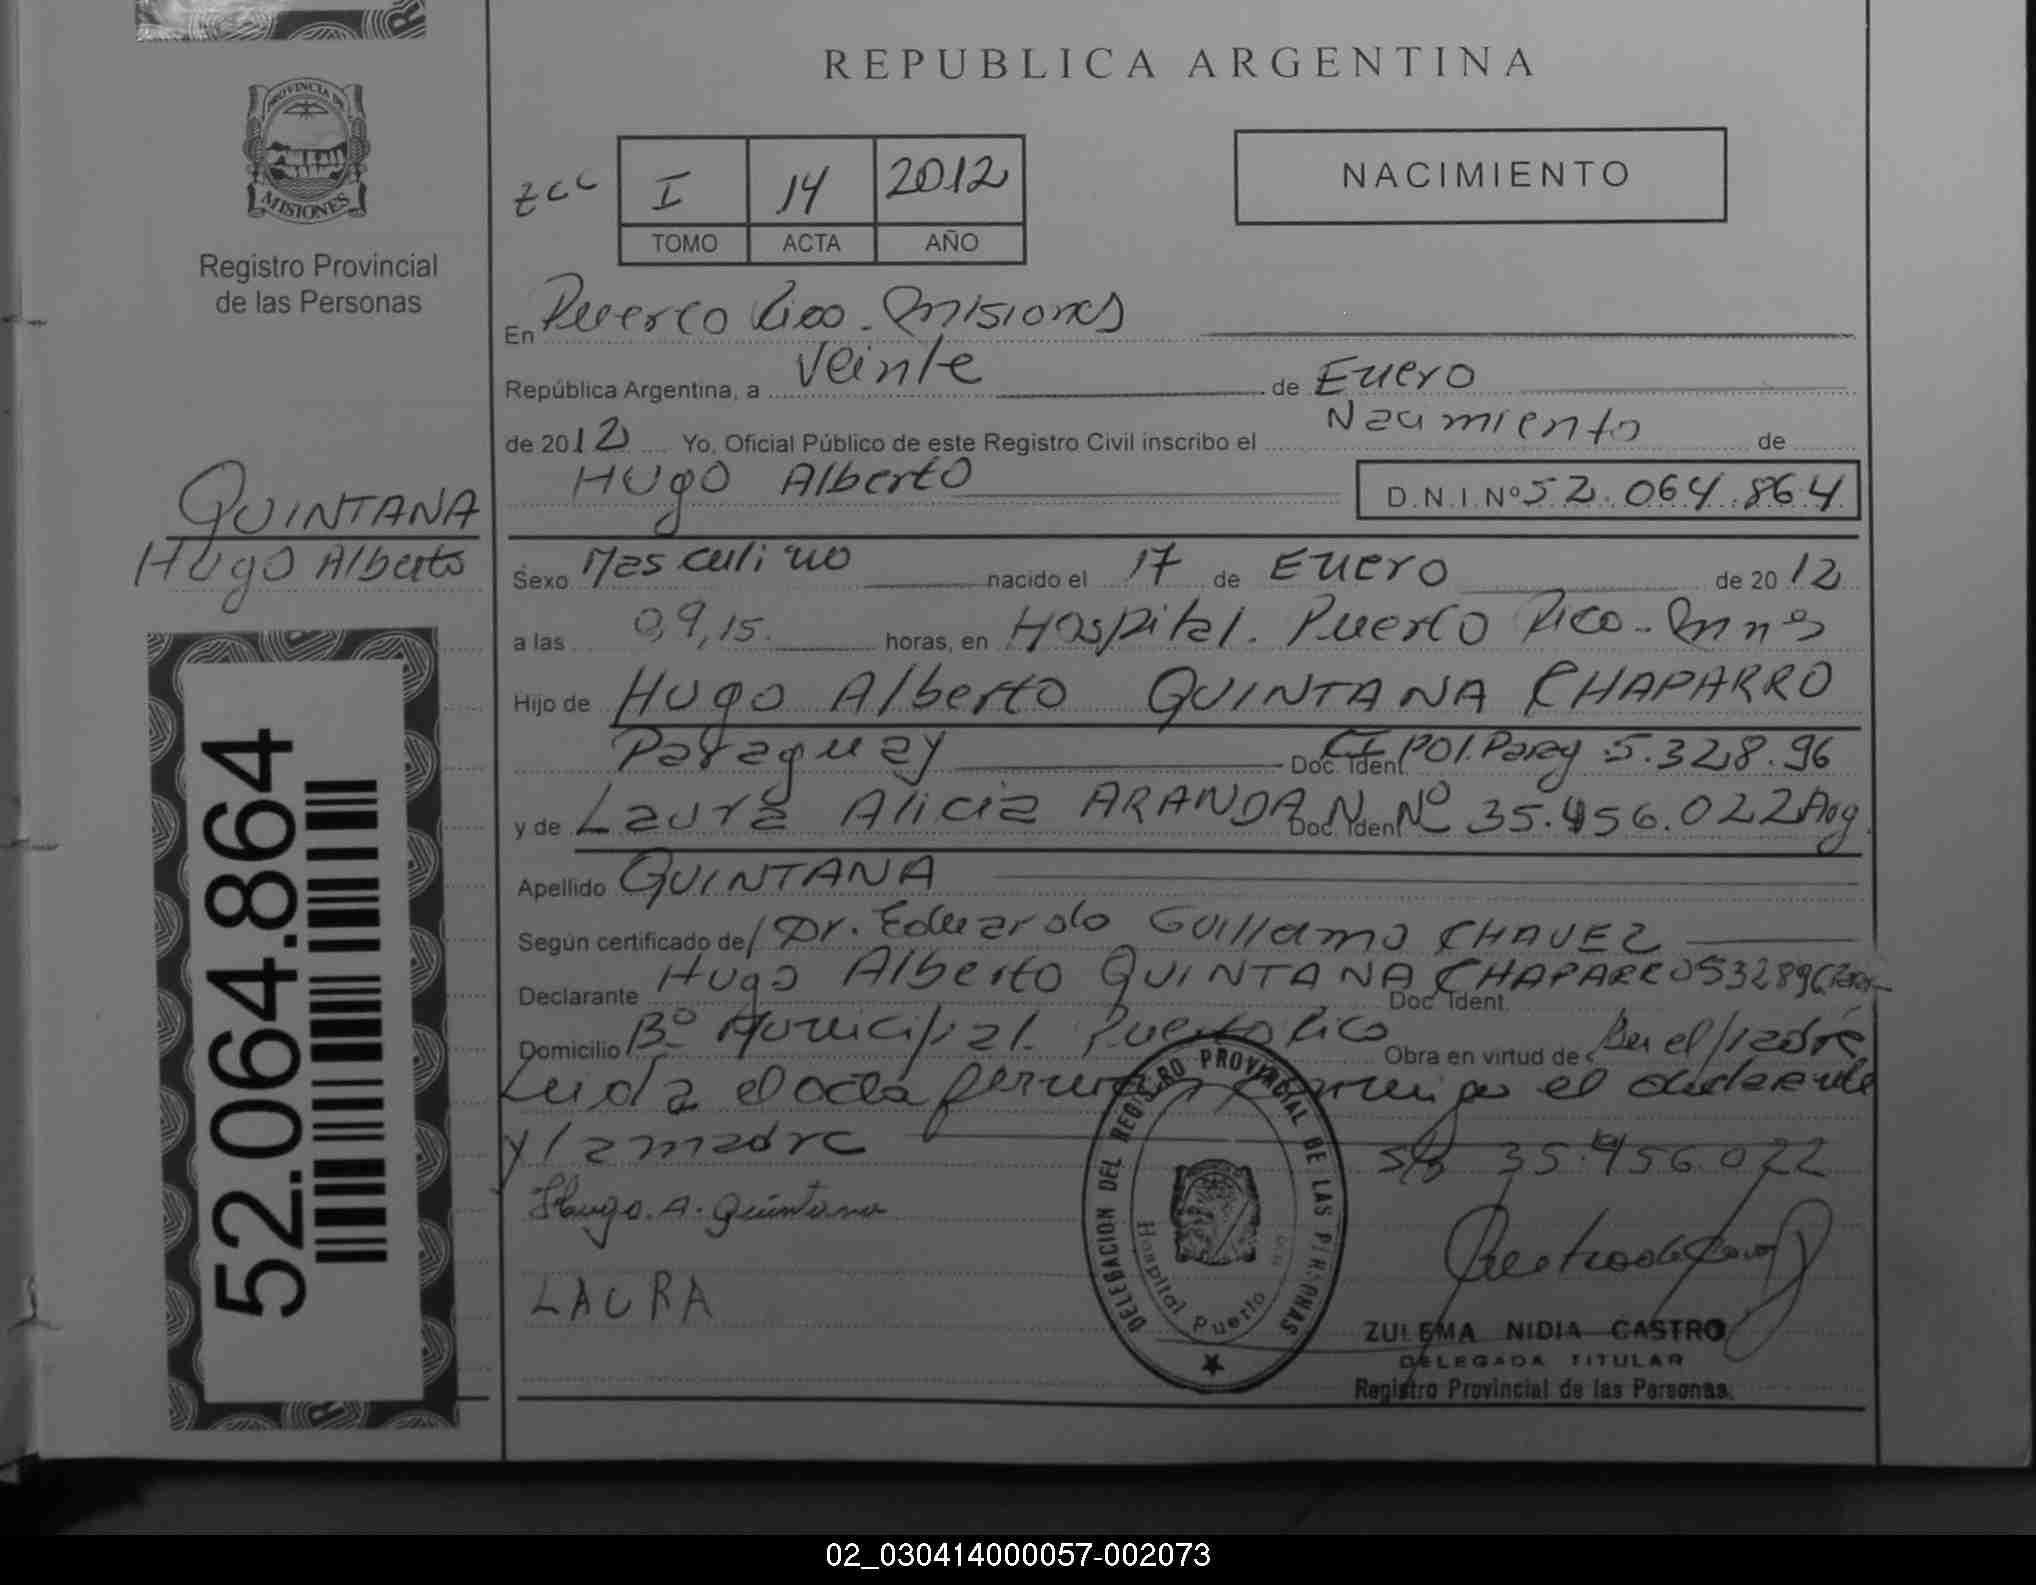 REPUBLICA ARGENTINA
PROVINCIA DE
MISIONES
Registro Provincial
de las Personas
I 14 2012
TOMO ACTA AÑO
NACIMIENTO
En Puerto Rico - Misiones
República Argentina, a Veinte de Enero
de 2012 Yo, Oficial Público de este Registro Civil inscribo el Nacimiento de
Hugo Alberto D.N.I.Nº 52.064.864
QUINTANA
Hugo Alberto
Sexo Masculino nacido el 17 de Enero de 2012
a las 09,15. horas, en Hospital. Puerto Rico - Mnes
Hijo de Hugo Alberto QUINTANA CHAPARRO
Paraguay Doc. Ident. CI Pol. Parag 5.328.96
y de Laura Alicia ARANDA Doc. Ident. DNI Nº 35.456.022 Arg.
Apellido QUINTANA
Según certificado de Dr. Eduardo Guillermo CHAVEZ
Declarante Hugo Alberto QUINTANA CHAPARRO Doc. Ident. 532896
Domicilio Bº Municipal. Puerto Rico Obra en virtud de Ser el padre
Leida el acta firman conmigo el declarante
y la madre s/b 35.456.022
Hugo. A. Quintana
LAURA
DELEGACION DEL REGISTRO PROVINCIAL DE LAS PERSONAS
Hospital Puerto
ZULEMA NIDIA CASTRO
DELEGADA TITULAR
Registro Provincial de las Personas.
52.064.864
02_030414000057-002073